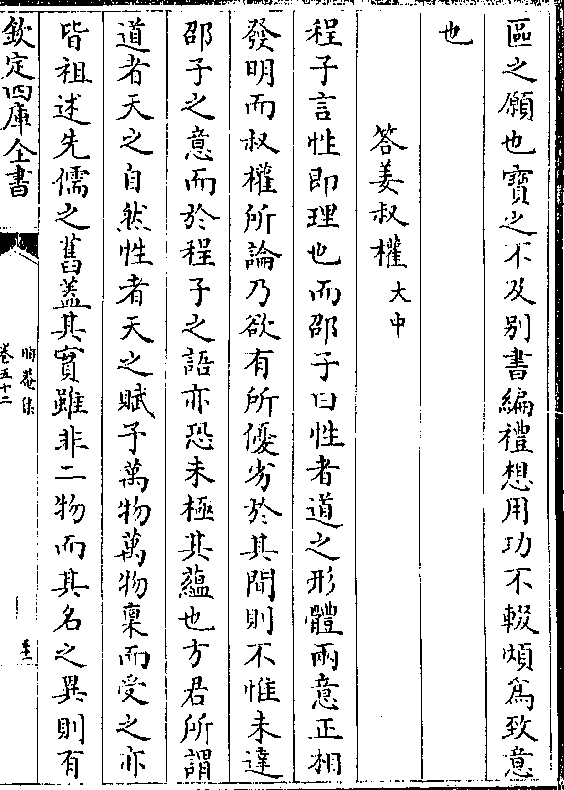 區之願也寶之不及别書編禮想用功不輟煩為致意
也
答姜叔權大中
程子言性即理也而邵子曰性者道之形體兩意正相
發明而叔權所論乃欲有所優劣於其間則不惟未達
邵子之意而於程子之語亦恐未極其藴也方君所謂
道者天之自然性者天之賦予萬物萬物稟而受之亦
皆祖述先儒之舊蓋其實雖非二物而其名之異則有
欽定四庫全書
晦菴集
卷五十二